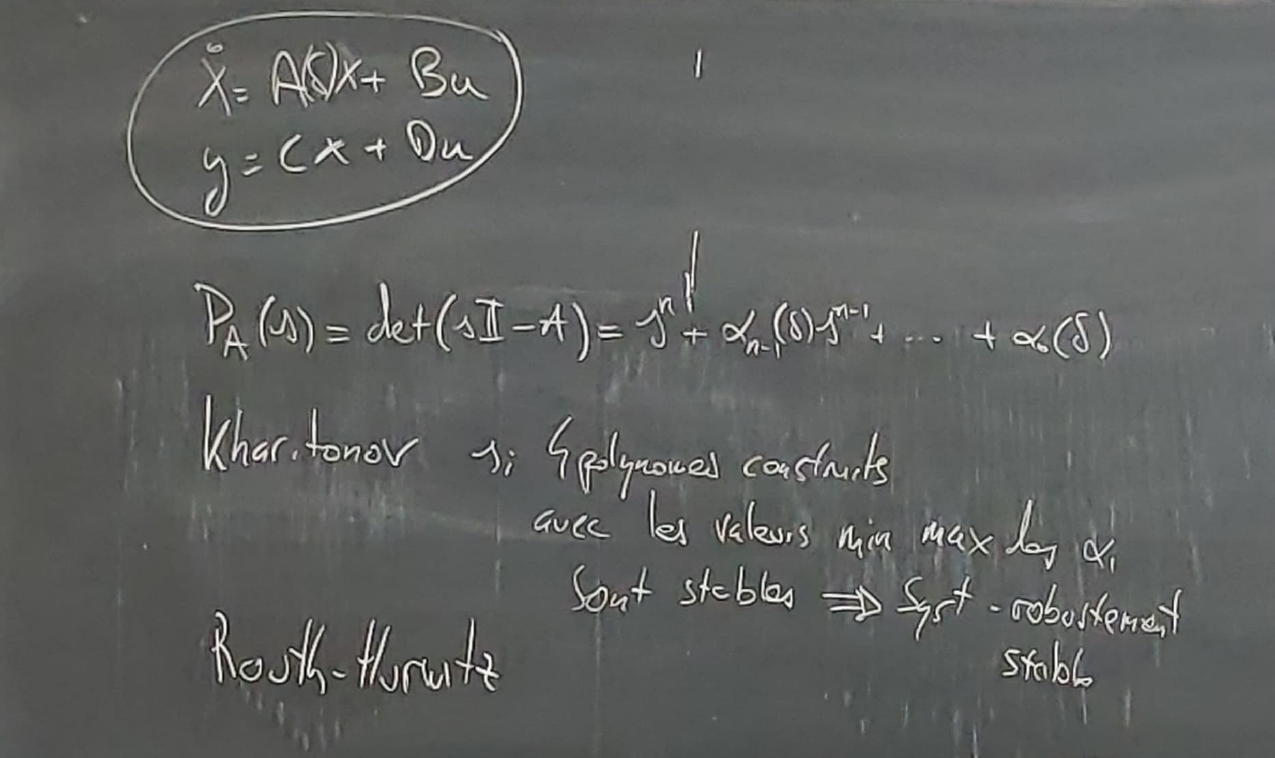 ẋ = A(δ)x + Bu
y = Cx + Du
P_A(s) = det(sI - A) = s^n + α_{n-1}(δ)s^{n-1} + ... + α_0(δ)
Kharitonov si 4 polynomes construits
avec les valeurs min max des α_i
Sont stables ⇒ Syst - robustement
stable
Routh-Hurwitz